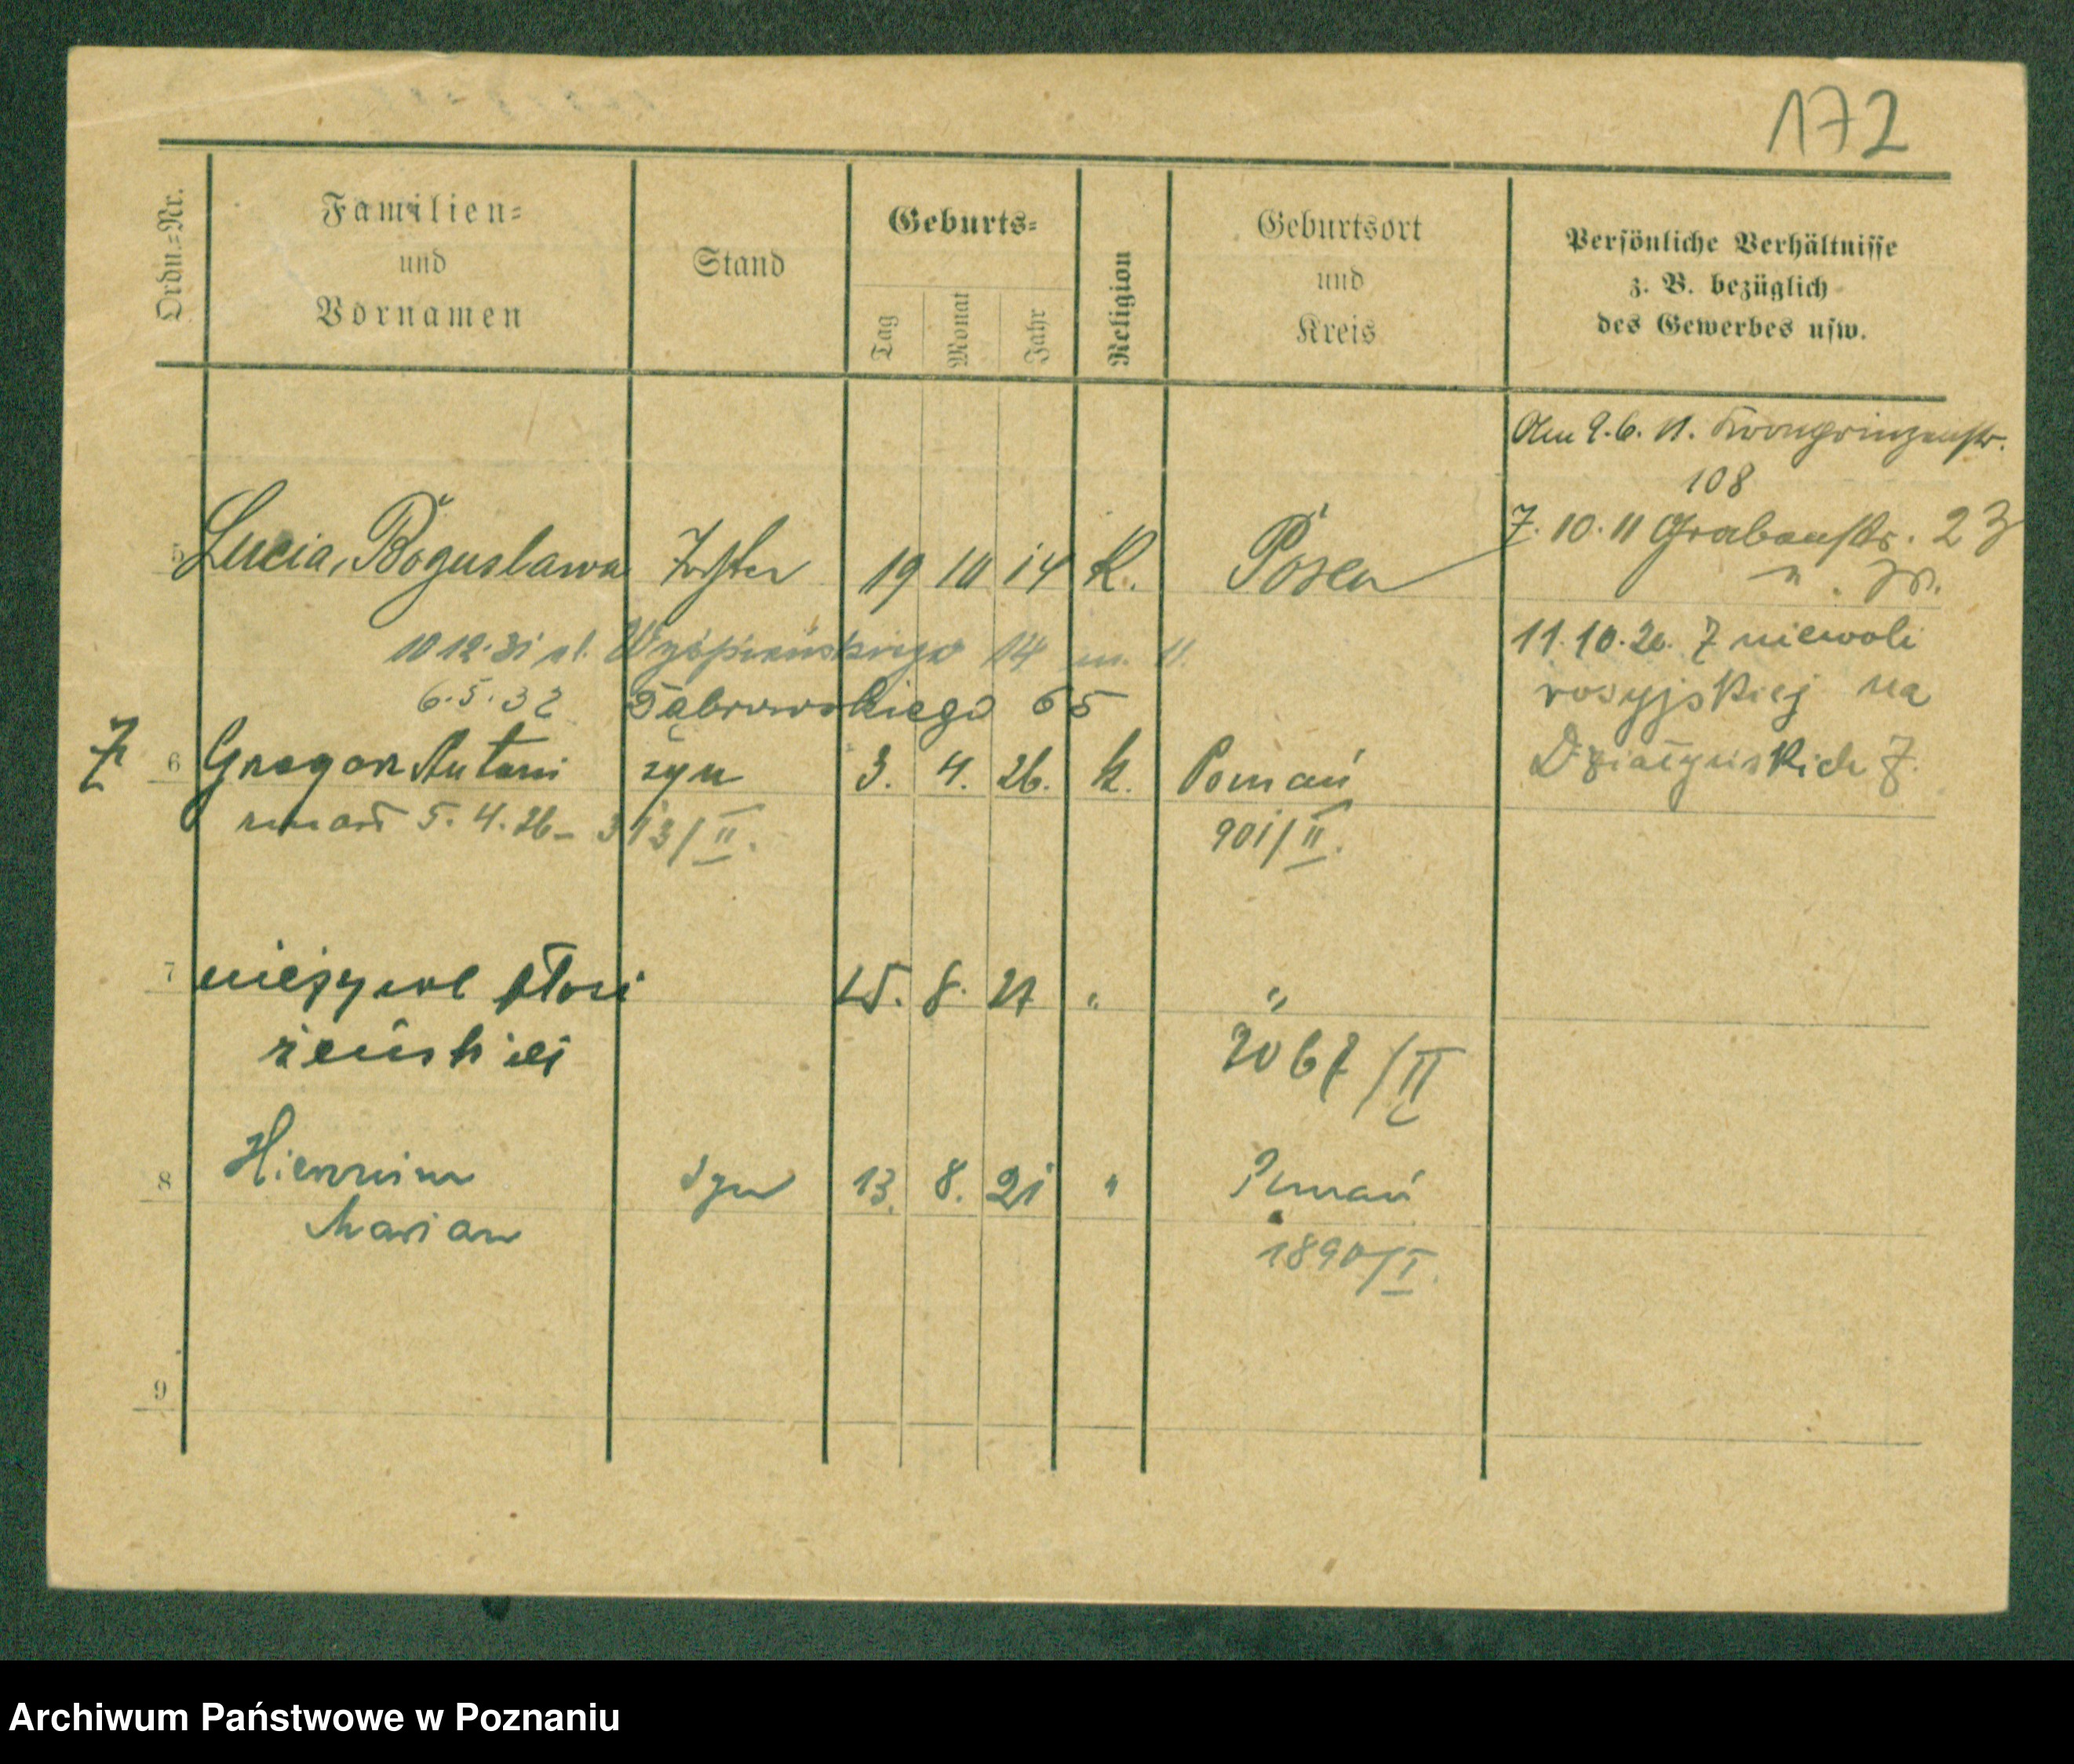 172
Ordn.=Nr.
Familien=
und
Vornamen
Stand
Geburts=
Tag
Monat
Jahr
Religion
Geburtsort
und
Kreis
Persönliche Verhältnisse
z. B. bezüglich
des Gewerbes usw.
9.6.11. Kronprinzenstr.
108
7.10.11 Grabenstr. 23
5 Lucia, Boguslawa Tochter 19 10 14 K. Posen
11.10.20. z niewoli
rosyjskiej na
Działyńskich 7.
10 12.31 pl. Wyspiańskiego 14 m. 11.
6.5.32 Dąbrowskiego 65
6 Gregor Antoni syn 3. 4. 26. k. Poznań
zmarł 5.4.26 – 313/II. 901/II.
7 nieżywe płci 15. 8. 27 " "
żeńskiej 2067/II
8 Hieronim syn 13. 8. 21 " Poznań
Marian 1890/I.
9
Archiwum Państwowe w Poznaniu